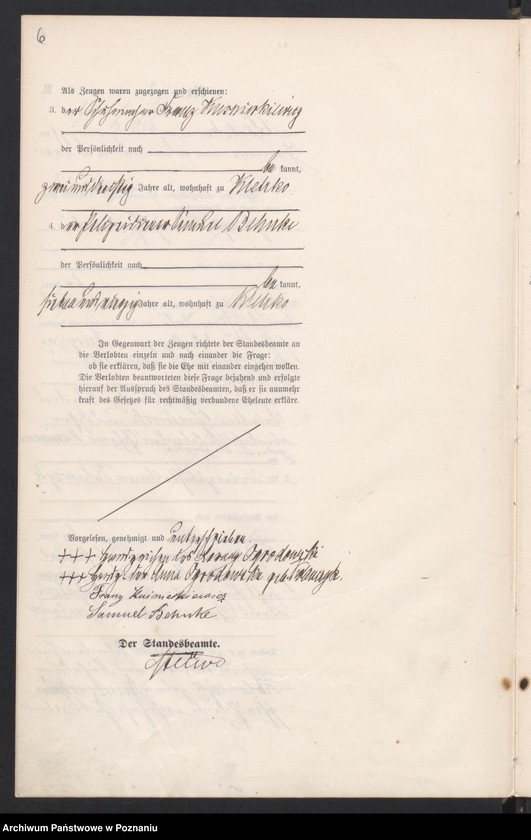 6
Als Zeugen waren zugezogen und erschienen:
3. der Schuhmacher Franz Kusnierkiewicz
der Persönlichkeit nach
bekannt,
zweiunddreißig Jahre alt, wohnhaft zu Kletzko
4. der Polizeidiener Samuel Behnke
der Persönlichkeit nach
bekannt,
Jahre alt, wohnhaft zu Kletzko
In Gegenwart der Zeugen richtete der Standesbeamte an
die Verlobten einzeln und nach einander die Frage:
ob sie erklären, daß sie die Ehe mit einander eingehen wollen.
Die Verlobten beantworteten diese Frage bejahend und erfolgte
hierauf der Ausspruch des Standesbeamten, daß er sie nunmehr
kraft des Gesetzes für rechtmäßig verbundene Eheleute erkläre.
Vorgelesen, genehmigt und unterschrieben
+++ Handzeichen des Ogrodowski
+++ Handz. der Anna Ogrodowska geb.
Franz Kuśnierkiewicz
Samuel Behnke
Der Standesbeamte.
Archiwum Państwowe w Poznaniu